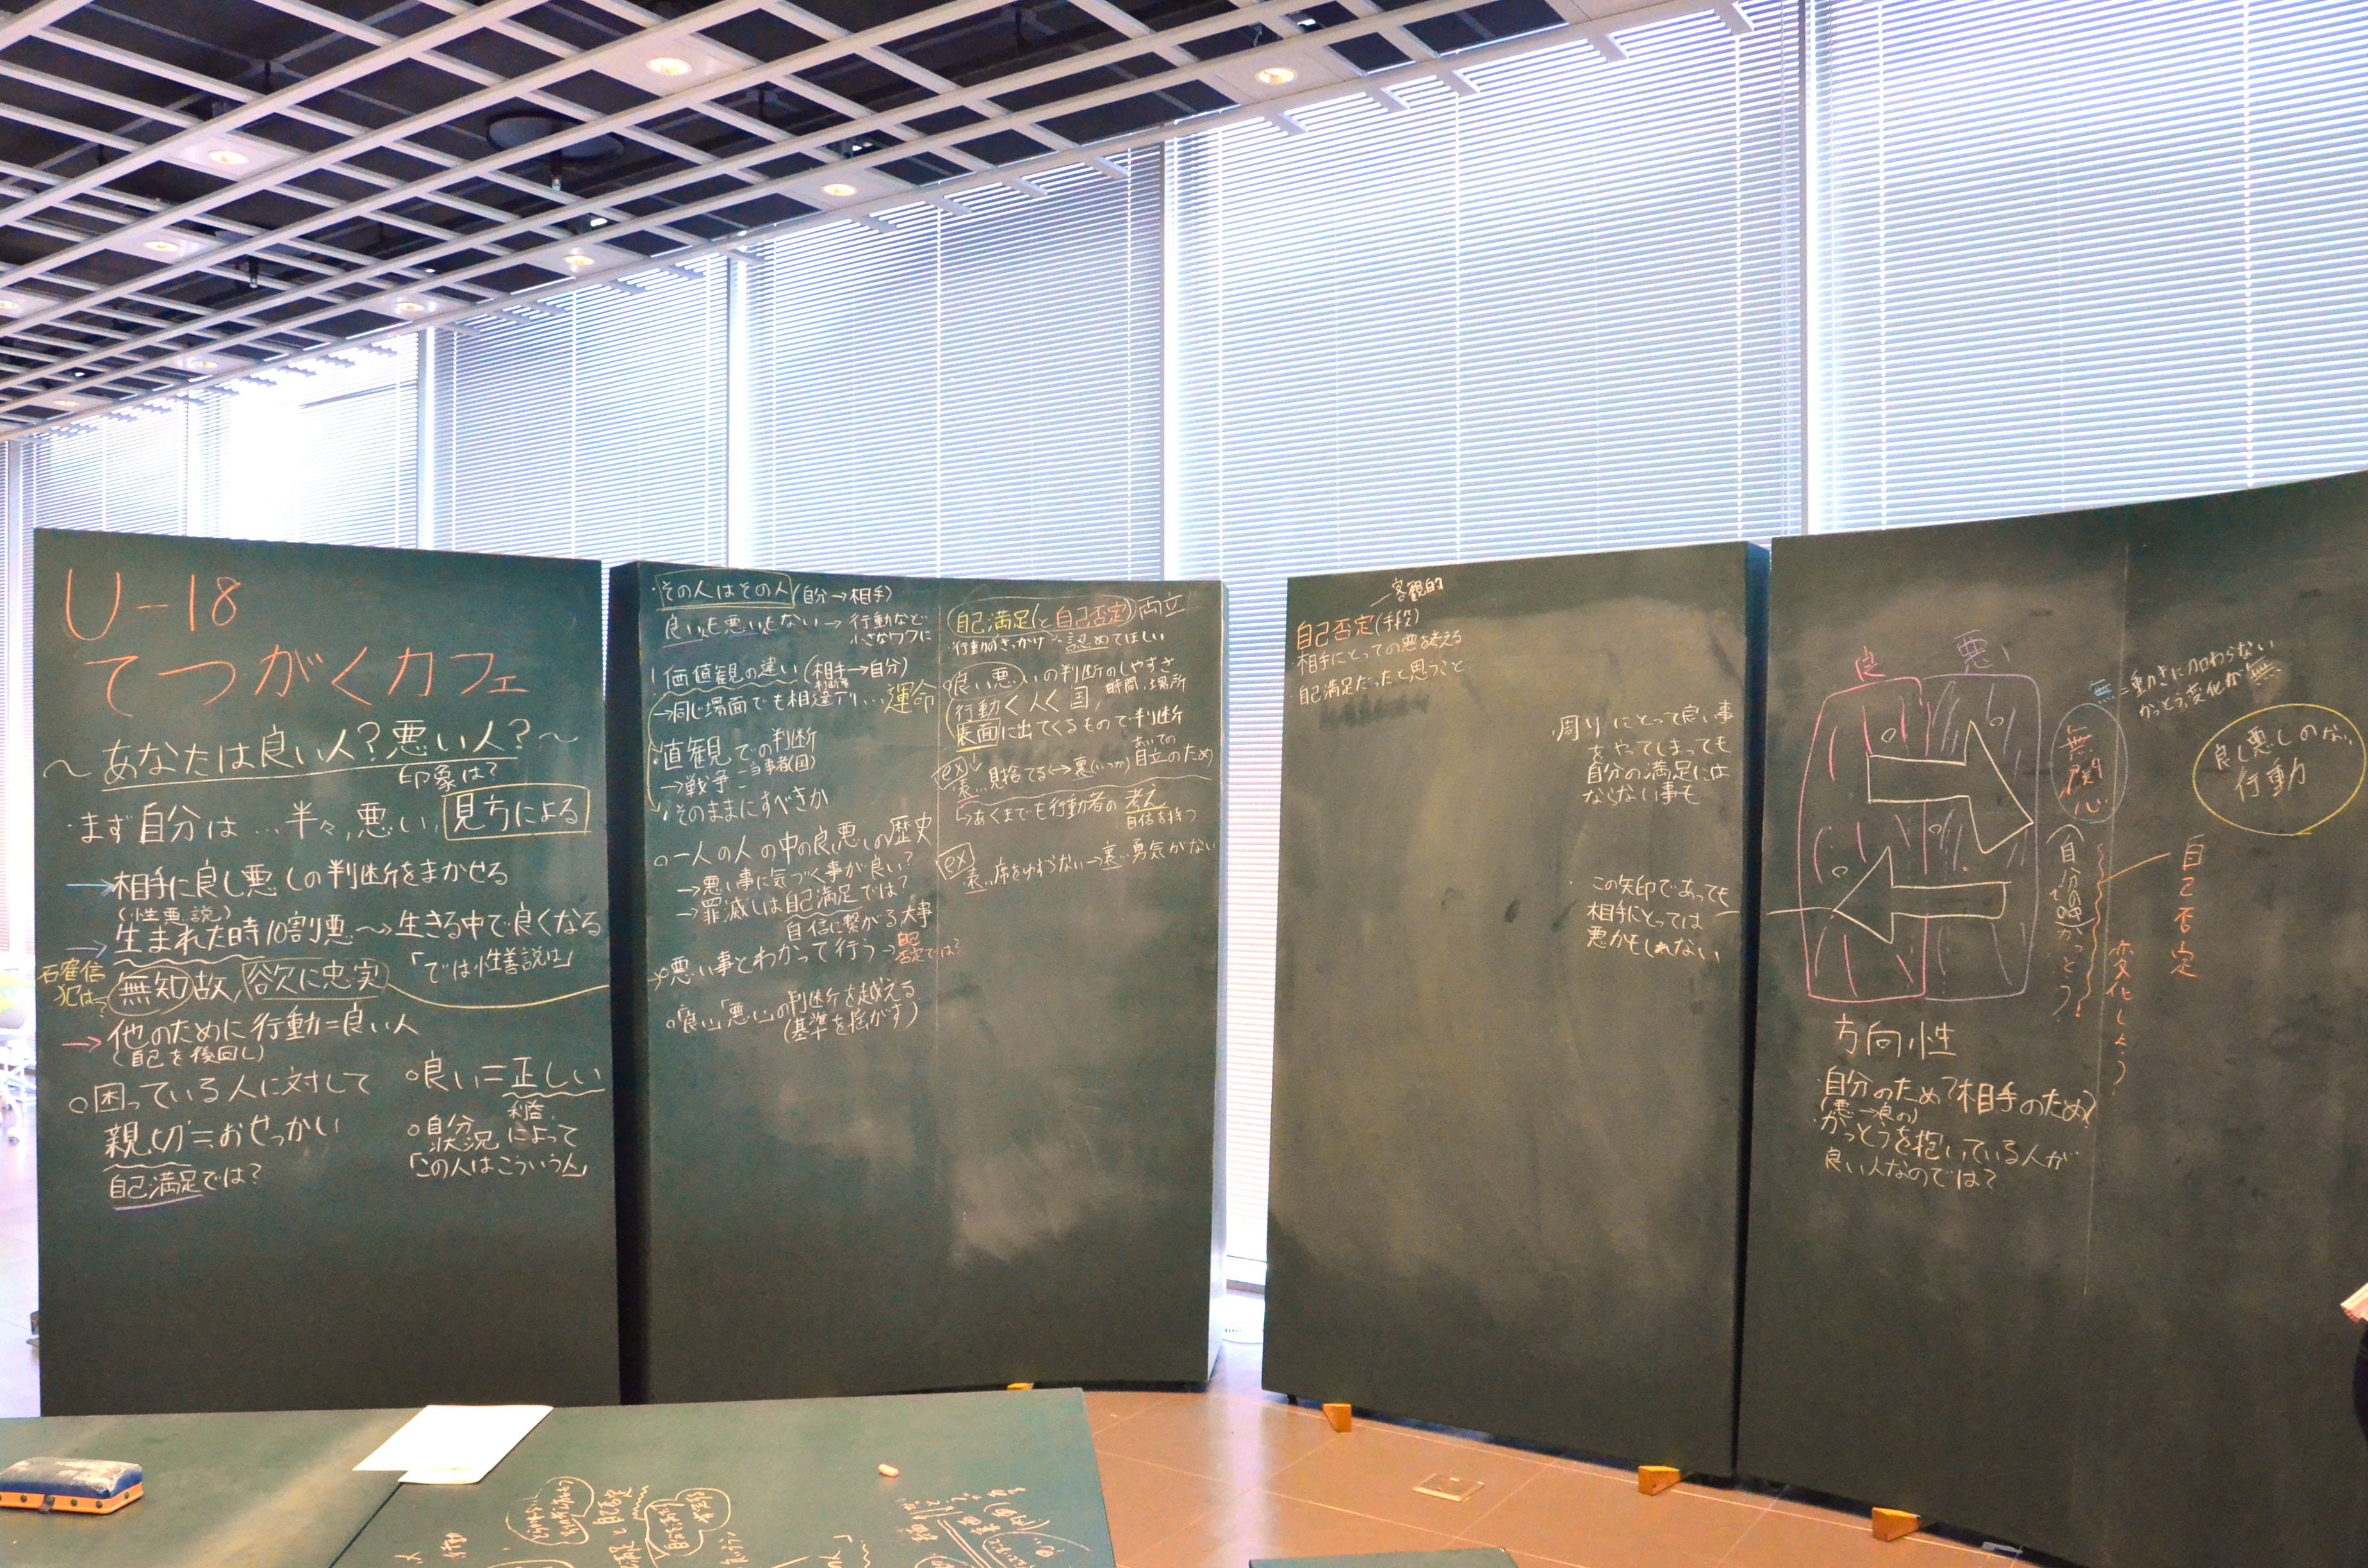 U-18
てつがくカフェ
～あなたは良い人?悪い人?～
印象は?
・まず自分は…半々,悪い,見方による
→相手に良し悪しの判断をまかせる
(性悪説)
生まれた時10割悪～→生きる中で良くなる
「では性善説は」
確信犯は?
無知故,欲に忠実
→他のために行動=良い人
(自己を後回し)
○困っている人に対して
親切=おせっかい
自己満足では?
○良い=正しい
利益,
○自分
状況によって
「この人はこういう人」
・その人はその人(自分→相手)
良いも悪いもない→行動など
小さなワクに
価値観の違い(相手→自分)
判断有
→同じ場面でも相違アリ…運命
直観での判断
→戦争―当事者(国)
そのままにすべきか
○一人の人の中の良い悪いの歴史
→悪い事に気づく事が良い?
→罪滅しは自己満足では?
自信に繋がる大事
悪い事とわかって行う→自己否定では?
○「良い」「悪い」の判断を越える
(基準を揺がす)
自己満足(と自己否定)両立
・行動のきっかけ→認めてほしい
○良い悪いの判断のしやすさ
行動<人<国, 時間,場所
表面に出てくるもので判断
ex 表…見捨てる↔裏(いつか)あいての自立のため
↳あくまでも行動者の考え
自信を持つ
ex 表…席をゆずらない→裏…勇気がない
客観的
自己否定(手段)
・相手にとっての悪を考える
・自己満足だったと思うこと
周りにとって良い事
をやってしまっても
自分の満足には
ならない事も
この矢印であっても
相手にとっては
悪かもしれない
良 悪
無=動きに加わらない
かっとう,変化が無
無関心
良し悪しのない
行動
(自分の中)かっとう
自己否定
変化しよう
方向性
・自分のため?相手のため?
(悪→良の)
・かっとうを抱いている人が
良い人なのでは?